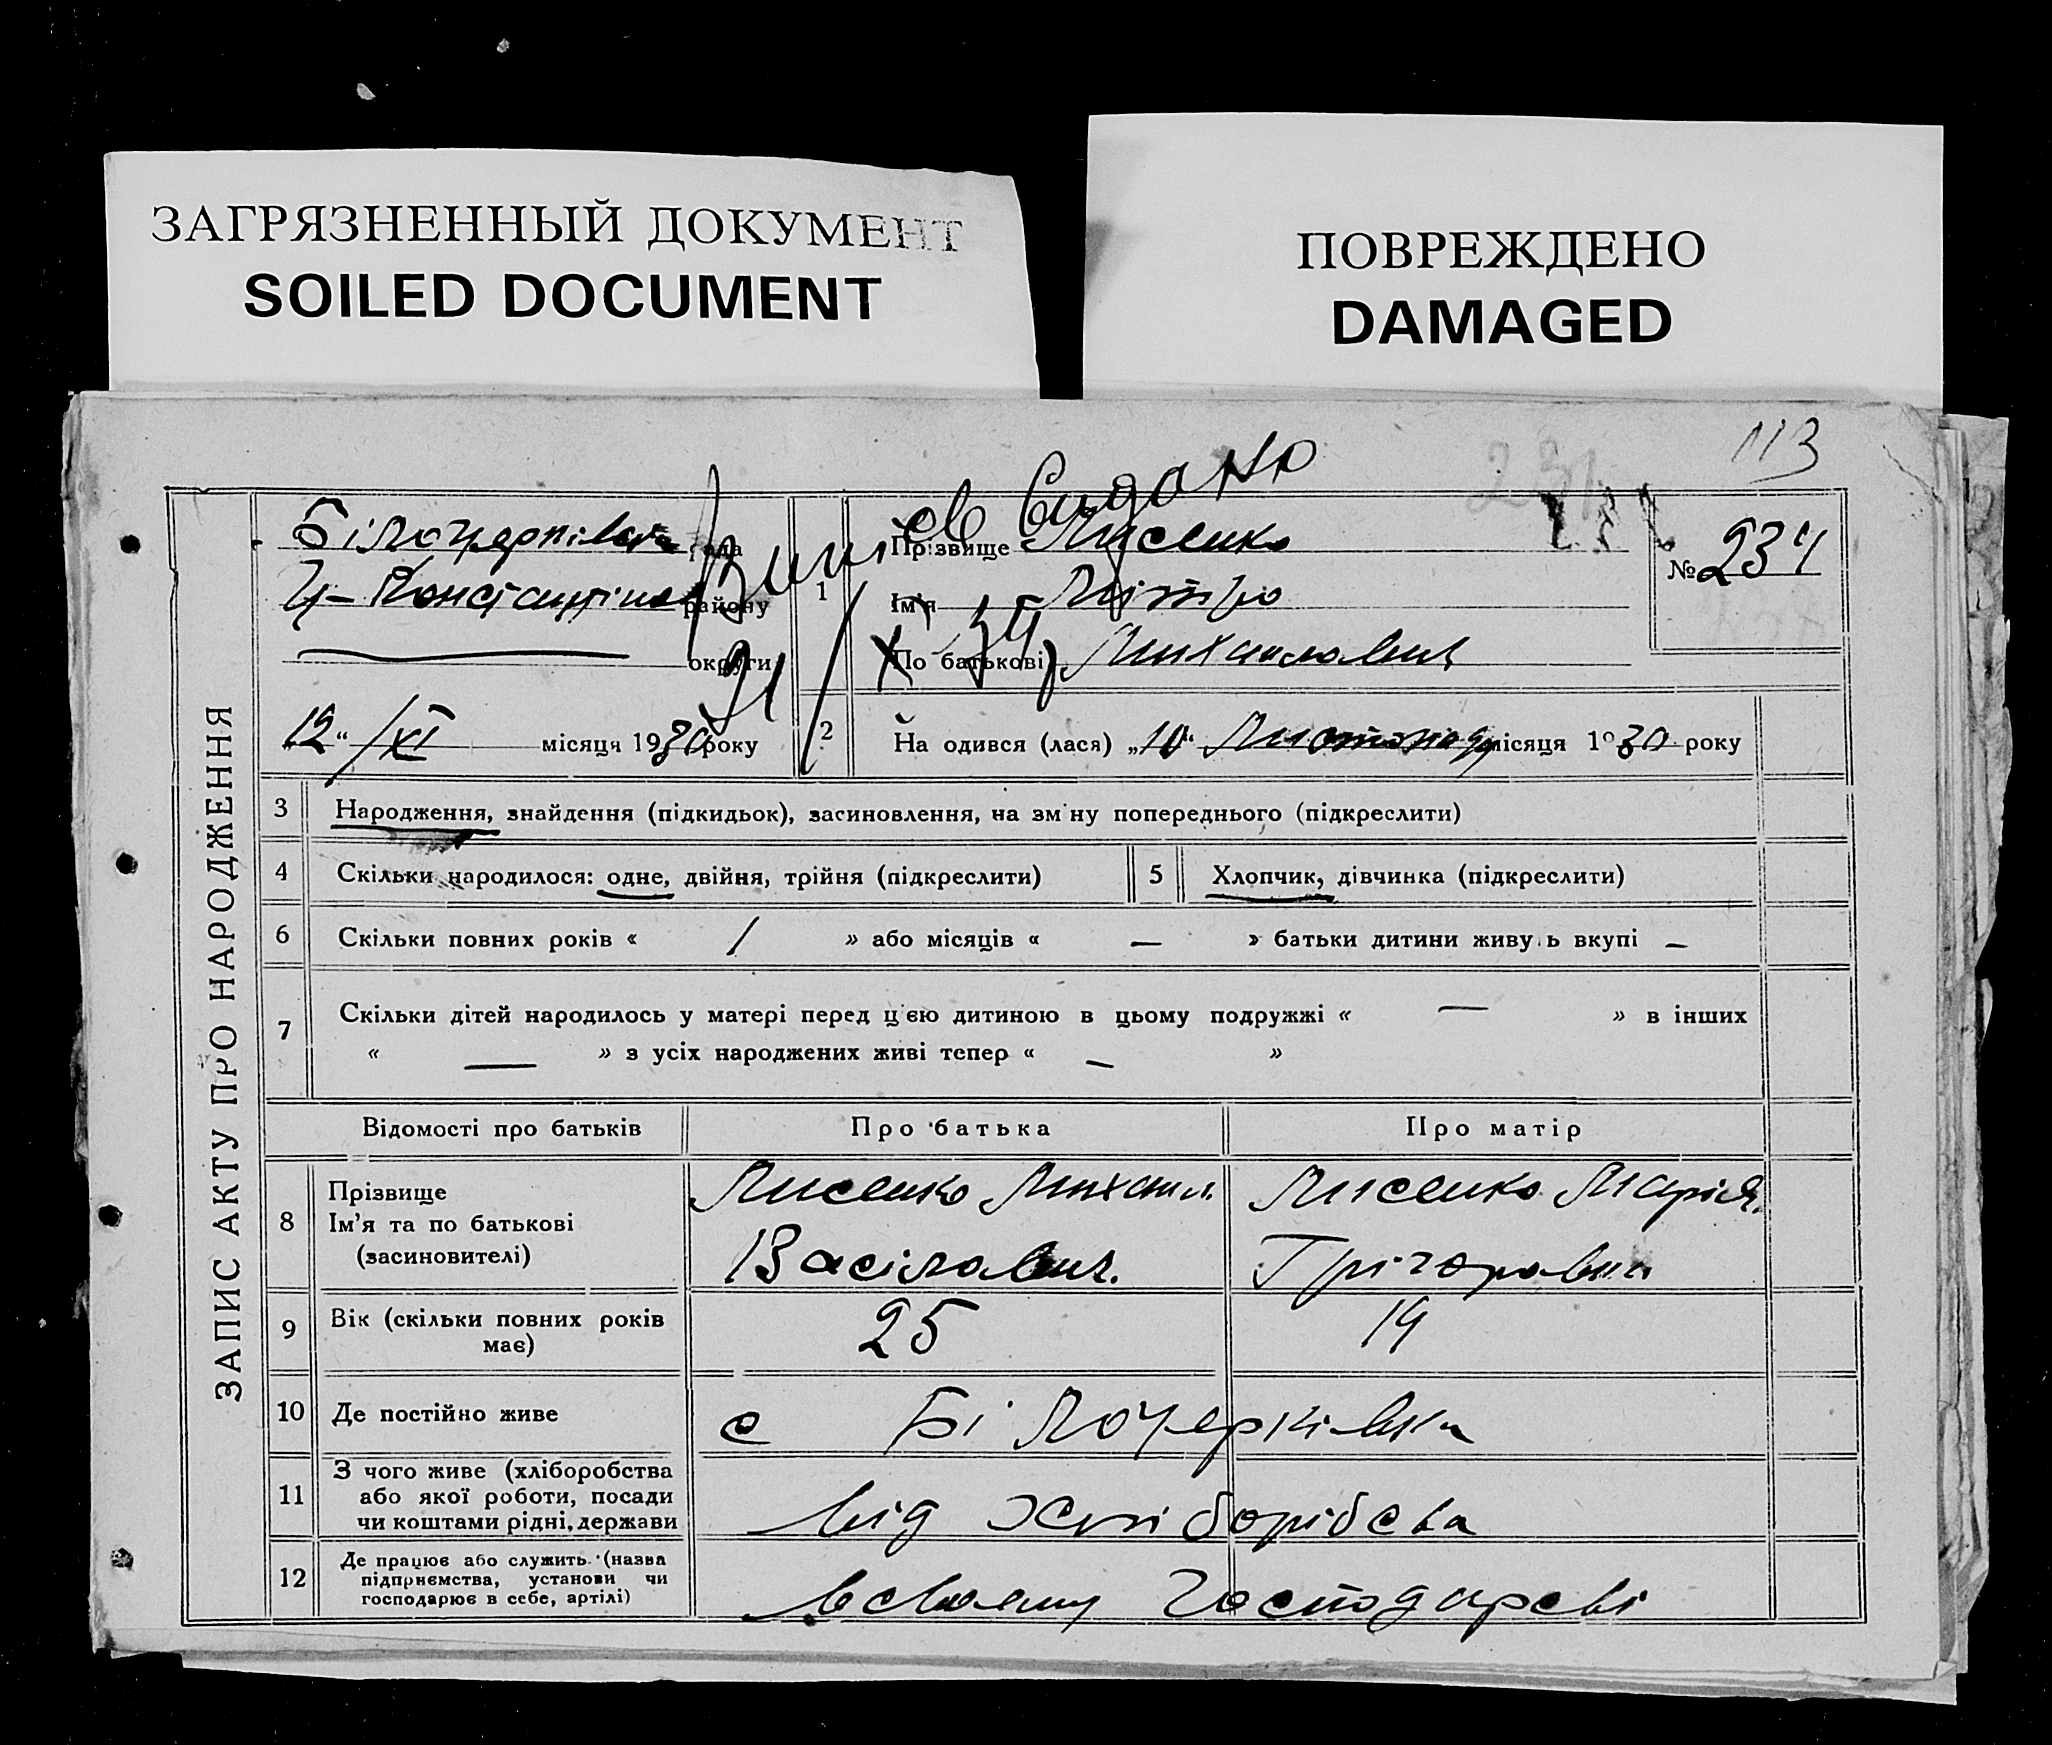 ЗАГРЯЗНЕННЫЙ ДОКУМЕНТ
SOILED DOCUMENT
ПОВРЕЖДЕНО
DAMAGED
113
ЗАПИС АКТУ ПРО НАРОДЖЕННЯ
рада
району
округи
"12" /XI місяця 1930 року
Видано
21/X 34 р
1
Прізвище Лисенко
Ім'я Мітро
По батькові Михайлович
№ 234
2 На одився (лася) „10" Листопад місяця 1930 року
3 Народження, знайдення (підкидьок), засиновлення, на зміну попереднього (підкреслити)
4 Скільки народилося: одне, двійня, трійня (підкреслити)
5 Хлопчик, дівчинка (підкреслити)
6 Скільки повних років « 1 » або місяців « — » батьки дитини живуть вкупі —
7 Скільки дітей народилось у матері перед цією дитиною в цьому подружжі « — » в інших
« — » з усіх народжених живі тепер « — »
Відомості про батьків Про батька Про матір
8 Прізвище
Ім'я та по батькові
(засиновителі)
Лисенко Михаил.
Васілович.
Лисенко Марія
Грігоровна
9 Вік (скільки повних років
має)
25 19
10 Де постійно живе с Білоцерківка
11 З чого живе (хліборобства
або якої роботи, посади
чи коштами рідні, держави
від Хліборібства
12 Де працює або служить (назва
підприємства, установи чи
господарює в себе, артілі)
в своєму Господарсві